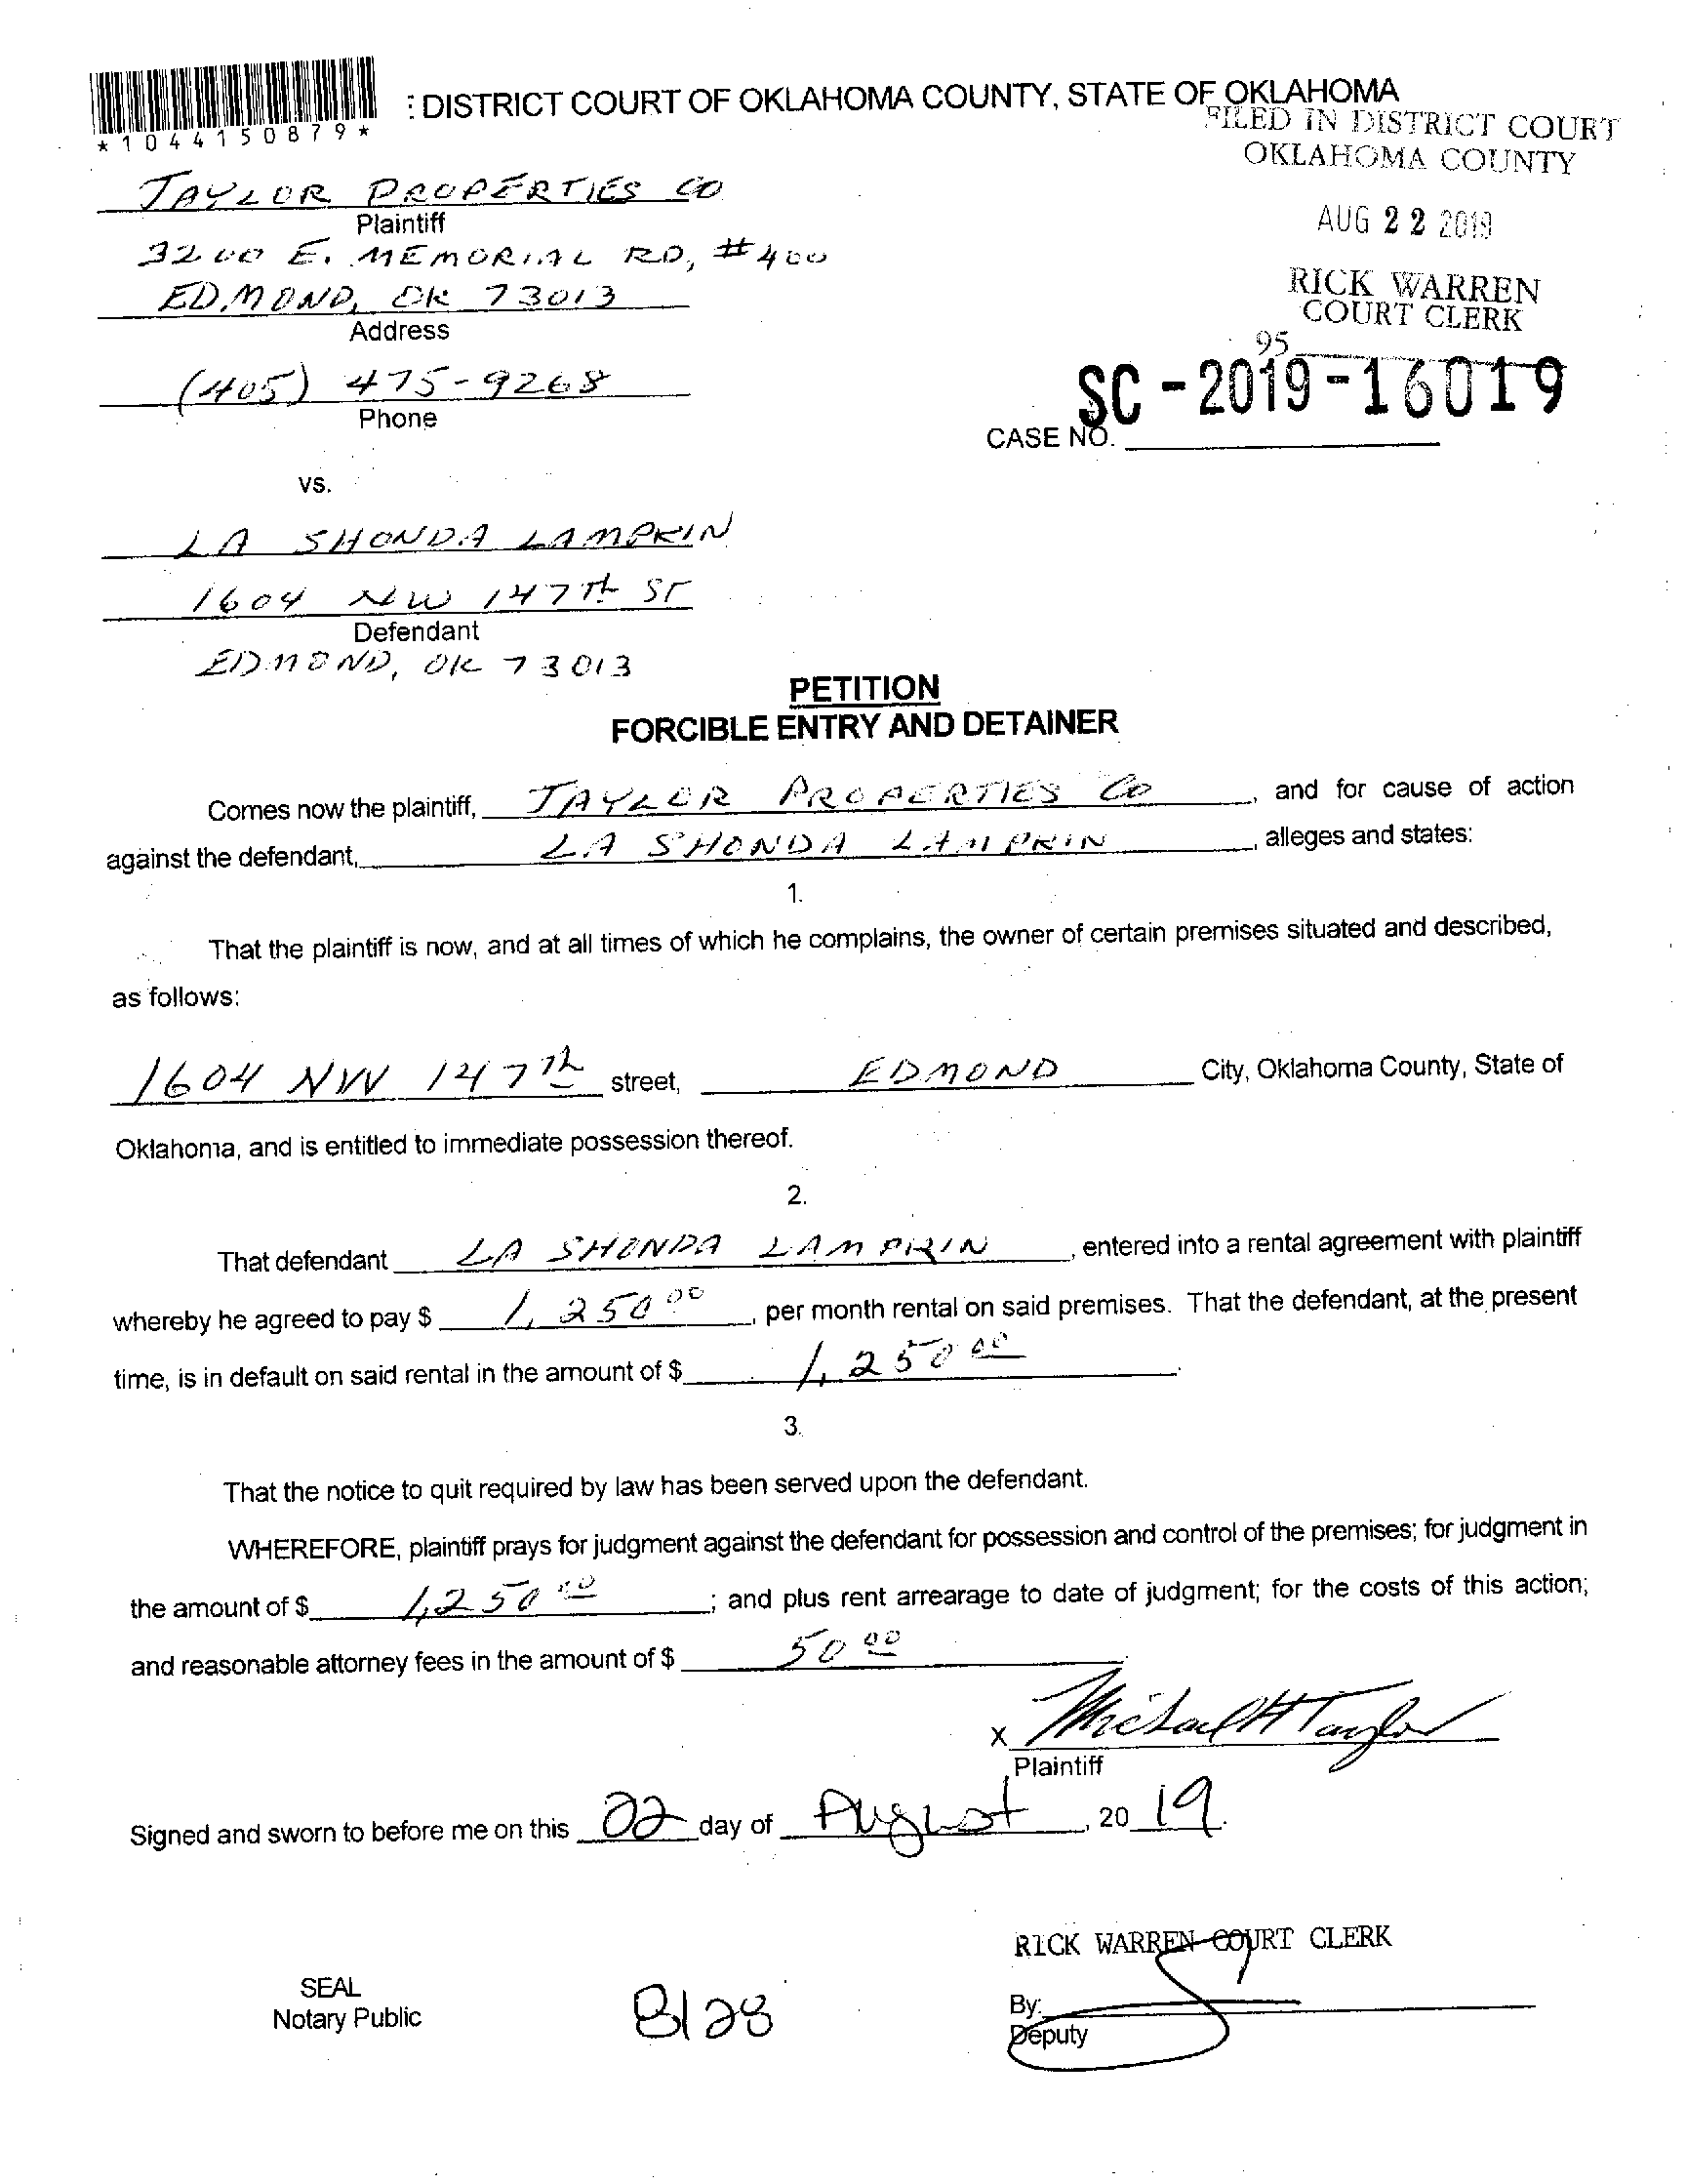 : DISTRICT COURT OF OKLAHOMA COUNTY, STATE OF OKLAHOMA
*1044150879*
FILED IN DISTRICT COURT
OKLAHOMA COUNTY
AUG 22 2019
RICK WARREN
COURT CLERK
95
SC-2019-16019
CASE NO.
TAYLOR PROPERTIES CO
Plaintiff
3200 E. MEMORIAL RD, #400
EDMOND, OK 73013
Address
(405) 475-9268
Phone
vs.
LA SHONDA LAMPKIN
1604 NW 147TH ST
Defendant
EDMOND, OK 73013
PETITION
FORCIBLE ENTRY AND DETAINER
Comes now the plaintiff, TAYLOR PROPERTIES CO, and for cause of action
against the defendant, LA SHONDA LAMPKIN, alleges and states:
1.
That the plaintiff is now, and at all times of which he complains, the owner of certain premises situated and described,
as follows:
1604 NW 147th street, EDMOND City, Oklahoma County, State of
Oklahoma, and is entitled to immediate possession thereof.
2.
That defendant LA SHONDA LAMPKIN, entered into a rental agreement with plaintiff
whereby he agreed to pay $ 1,250 00, per month rental on said premises. That the defendant, at the present
time, is in default on said rental in the amount of $ 1,250 00.
3.
That the notice to quit required by law has been served upon the defendant.
WHEREFORE, plaintiff prays for judgment against the defendant for possession and control of the premises; for judgment in
the amount of $ 1,250 00; and plus rent arrearage to date of judgment; for the costs of this action;
and reasonable attorney fees in the amount of $ 50 00.
X Michael H Taylor
Plaintiff
Signed and sworn to before me on this 22 day of August, 20 19.
RICK WARREN COURT CLERK
SEAL
Notary Public
8/28
By:
Deputy